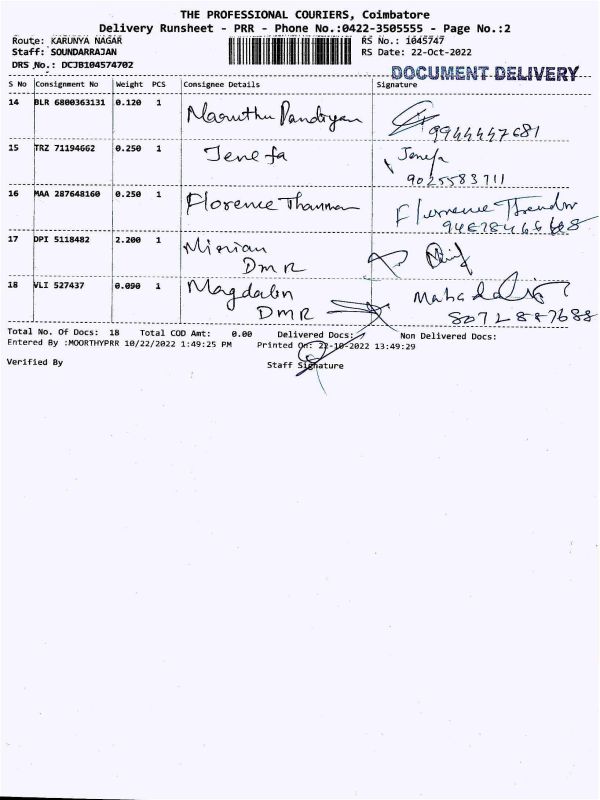 THE PROFESSIONAL COURIERS, Coimbatore
Delivery Runsheet - PRR - Phone No.:0422-3505555 - Page No.:2
Route: KARUNYA NAGAR RS No.: 1045747
Staff: SOUNDARRAJAN RS Date: 22-Oct-2022
DRS No.: DCJB104574702 DOCUMENT DELIVERY
S No Consignment No Weight PCS Consignee Details Signature
14 BLR 6800363131 0.120 1 Maruthu Pandiyan
9944447681
15 TRZ 71194662 0.250 1 Jenefa Jenefa
9025583711
16 MAA 287648160 0.250 1 Florence
17 DPI 5118482 2.200 1 Mirian
DMR
18 VLI 527437 0.090 1 Magdalin
DMR
8072887688
Total No. Of Docs: 18 Total COD Amt: 0.00 Delivered Docs: Non Delivered Docs:
Entered By :MOORTHYPRR 10/22/2022 1:49:25 PM Printed On: 22-10-2022 13:49:29
Verified By Staff Signature